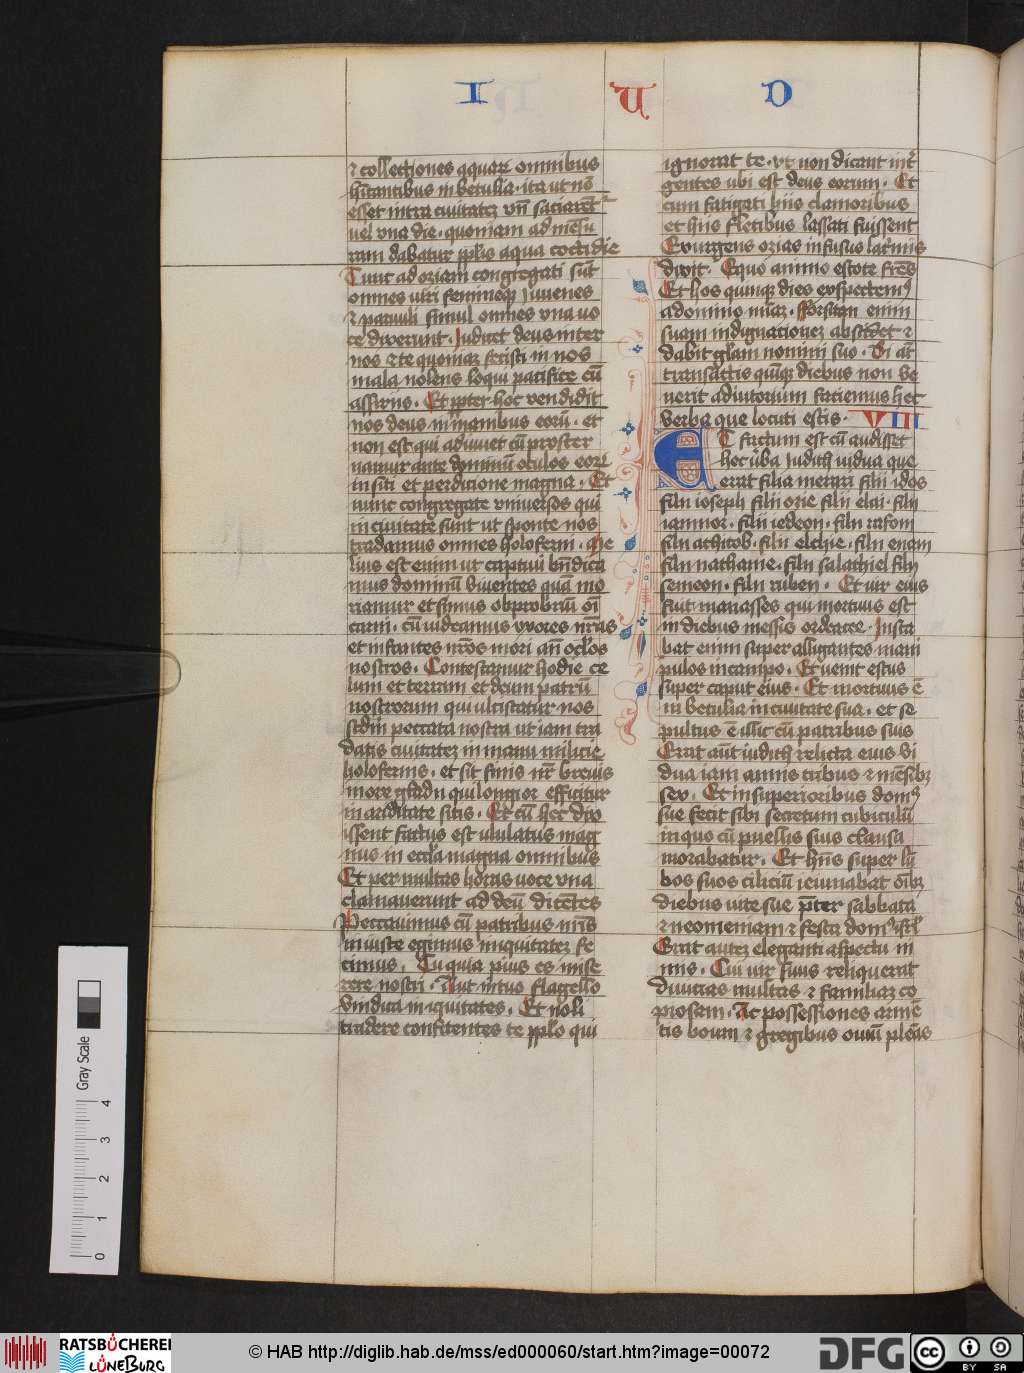 I U D
⁊ collectiones aquarū omnibus
hitantibus in betulia · ita ut nō
esset intra ciuitatez vn̄ saciarēt᷑
uel vna die · quoniam ad mēsu
ram dabatur pplis aqua cottidie
Tunc ad oziam congregati sūt
omnes uiri femineqꝫ iuuenes
⁊ paruuli simul omnes vna uo
ce dixerunt · Iudicet deus inter
nos ⁊ te quoniaz fecisti in nos
mala nolens loqui pacifice cū
assirijs · Et ꝓpter hoc vendidit
nos deus in manibus eorū · et
non est qui adiuuet cū proster
namur ante oculos eorū
in siti et perdicione magna · Et
nunc congregate vniuersos qui
in ciuitate sunt ut sponte nos
tradamus omnes holoferni · Me
lius est enim ut captiui bn̄dica
mus dominū viuentes quā mo
riamur et simus obprobriū oī
carni · cū uideamus vxores nr̄as
et infantes nr̄os mori an̄ oclos
nostros · Contestamur hodie ce
lum et terram et deum patrū
nostrorum qui ulciscatur nos
scdm peccata nostra ut iam tra
datis ciuitatez in manu milicie
holofernis · et sit finis nr̄ breuis
in ore gladij qui longior efficitur
in ariditate sitis · Et cū hec dix
issent factus est ululatus mag
nus in eccl̄ia magna omnibus
Et per multas horas uoce vna
clamauerunt ad deū dicentes
Peccauimus cū patribus nr̄is
iniuste egimus iniquitatez fe
cimus · Tu quia pius es mise
rere nostri · Aut in tuo flagello
vindica iniquitates · Et noli
tradere confitentes te pplo qui
ignorat te · vt non dicant int᷑
gentes ubi est deus eorum · Et
cum fatigati hiis clamoribus
et hiis fletibus lassati fuissent
Exurgens ozias infusus lac᷑mis
dixit · Equo animo estote fr̄es
Et hos quinqꝫ dies exspectemꝰ
a domino mīaz · fforsitan enim
suam indignationez abscidet ⁊
dabit glam nomini suo · Si aūt
transactis quīqꝫ diebus non ve
nerit adiutorium faciemus hec
verba que locuti estis · VIII
ET factum est cū audisset
hec v̄ba Iudith uidua que
erat filia merari filii idox
filij ioseph filii ozie filii elai · filij
iamnor · filii iedeon · filij rafoni
filii achitob · filii elchie · filij enam
filii nathanie · filii salathiel filij
semeon · filij ruben · Et uir eius
fuit manasses qui mortuus est
in diebus messis ordeacee · Insta
bat enim super alligantes mani
pulos in campo · Et uenit estus
super caput eius · Et mortuus ē
in betulia in ciuitate sua · et se
pultus ē illic cū patribus suis
Erat aūt iudith relicta eius vi
dua iam annis tribus ⁊ mēsibꝫ
sex · Et in superioribus domꝰ
sue fecit sibi secretum cubiculū
in quo cū puellis suis clausa
morabatur · Et hn̄s super lū
bos suos ciliciū ieiunabat oībꝫ
diebus uite sue p̄ter sabbata
⁊ neomeniam ⁊ festa domꝰ isrl̄
Erat autez eleganti aspectu ni
mis · Cui uir suus reliquerat
diuicias multas ⁊ familiaz co
piosam · Ac possessiones armē
tis boum ⁊ gregibus ouiū plēas
Gray Scale
0 1 2 3 4
RATSBÜCHEREI LÜNEBURG
© HAB http://diglib.hab.de/mss/ed000060/start.htm?image=00072
DFG
CC BY SA